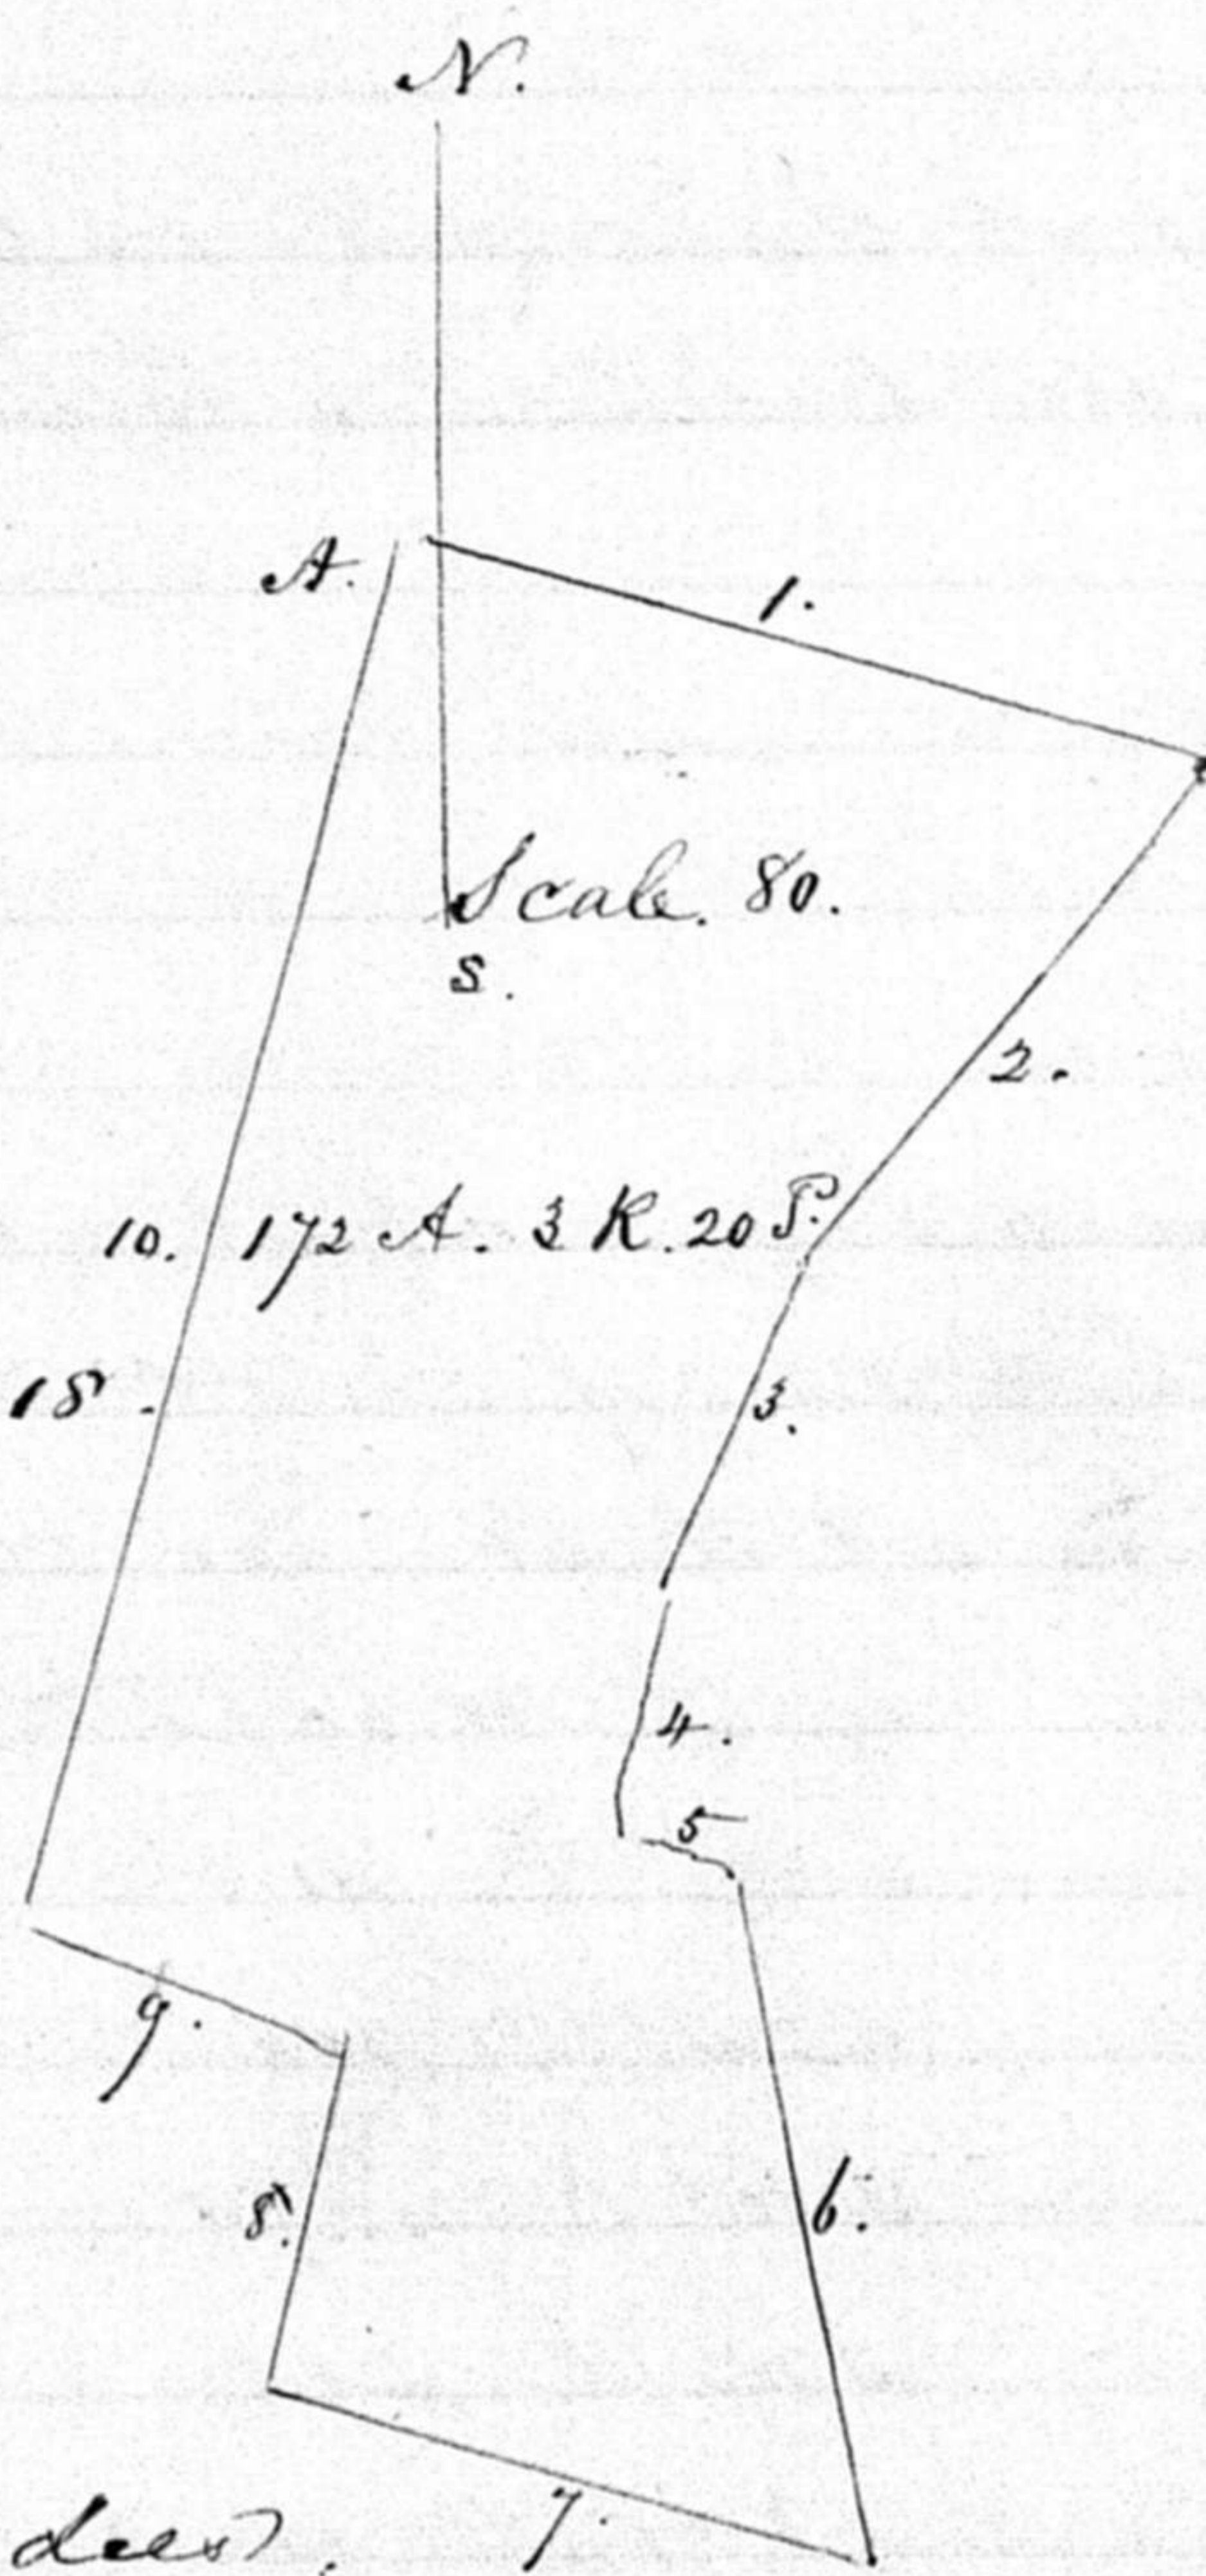 N.
A.
1.
Scale. 80.
S.
2.
10. 172 A. 3 R. 20 P.
18.
3.
4.
5
9.
8.
6.
7.